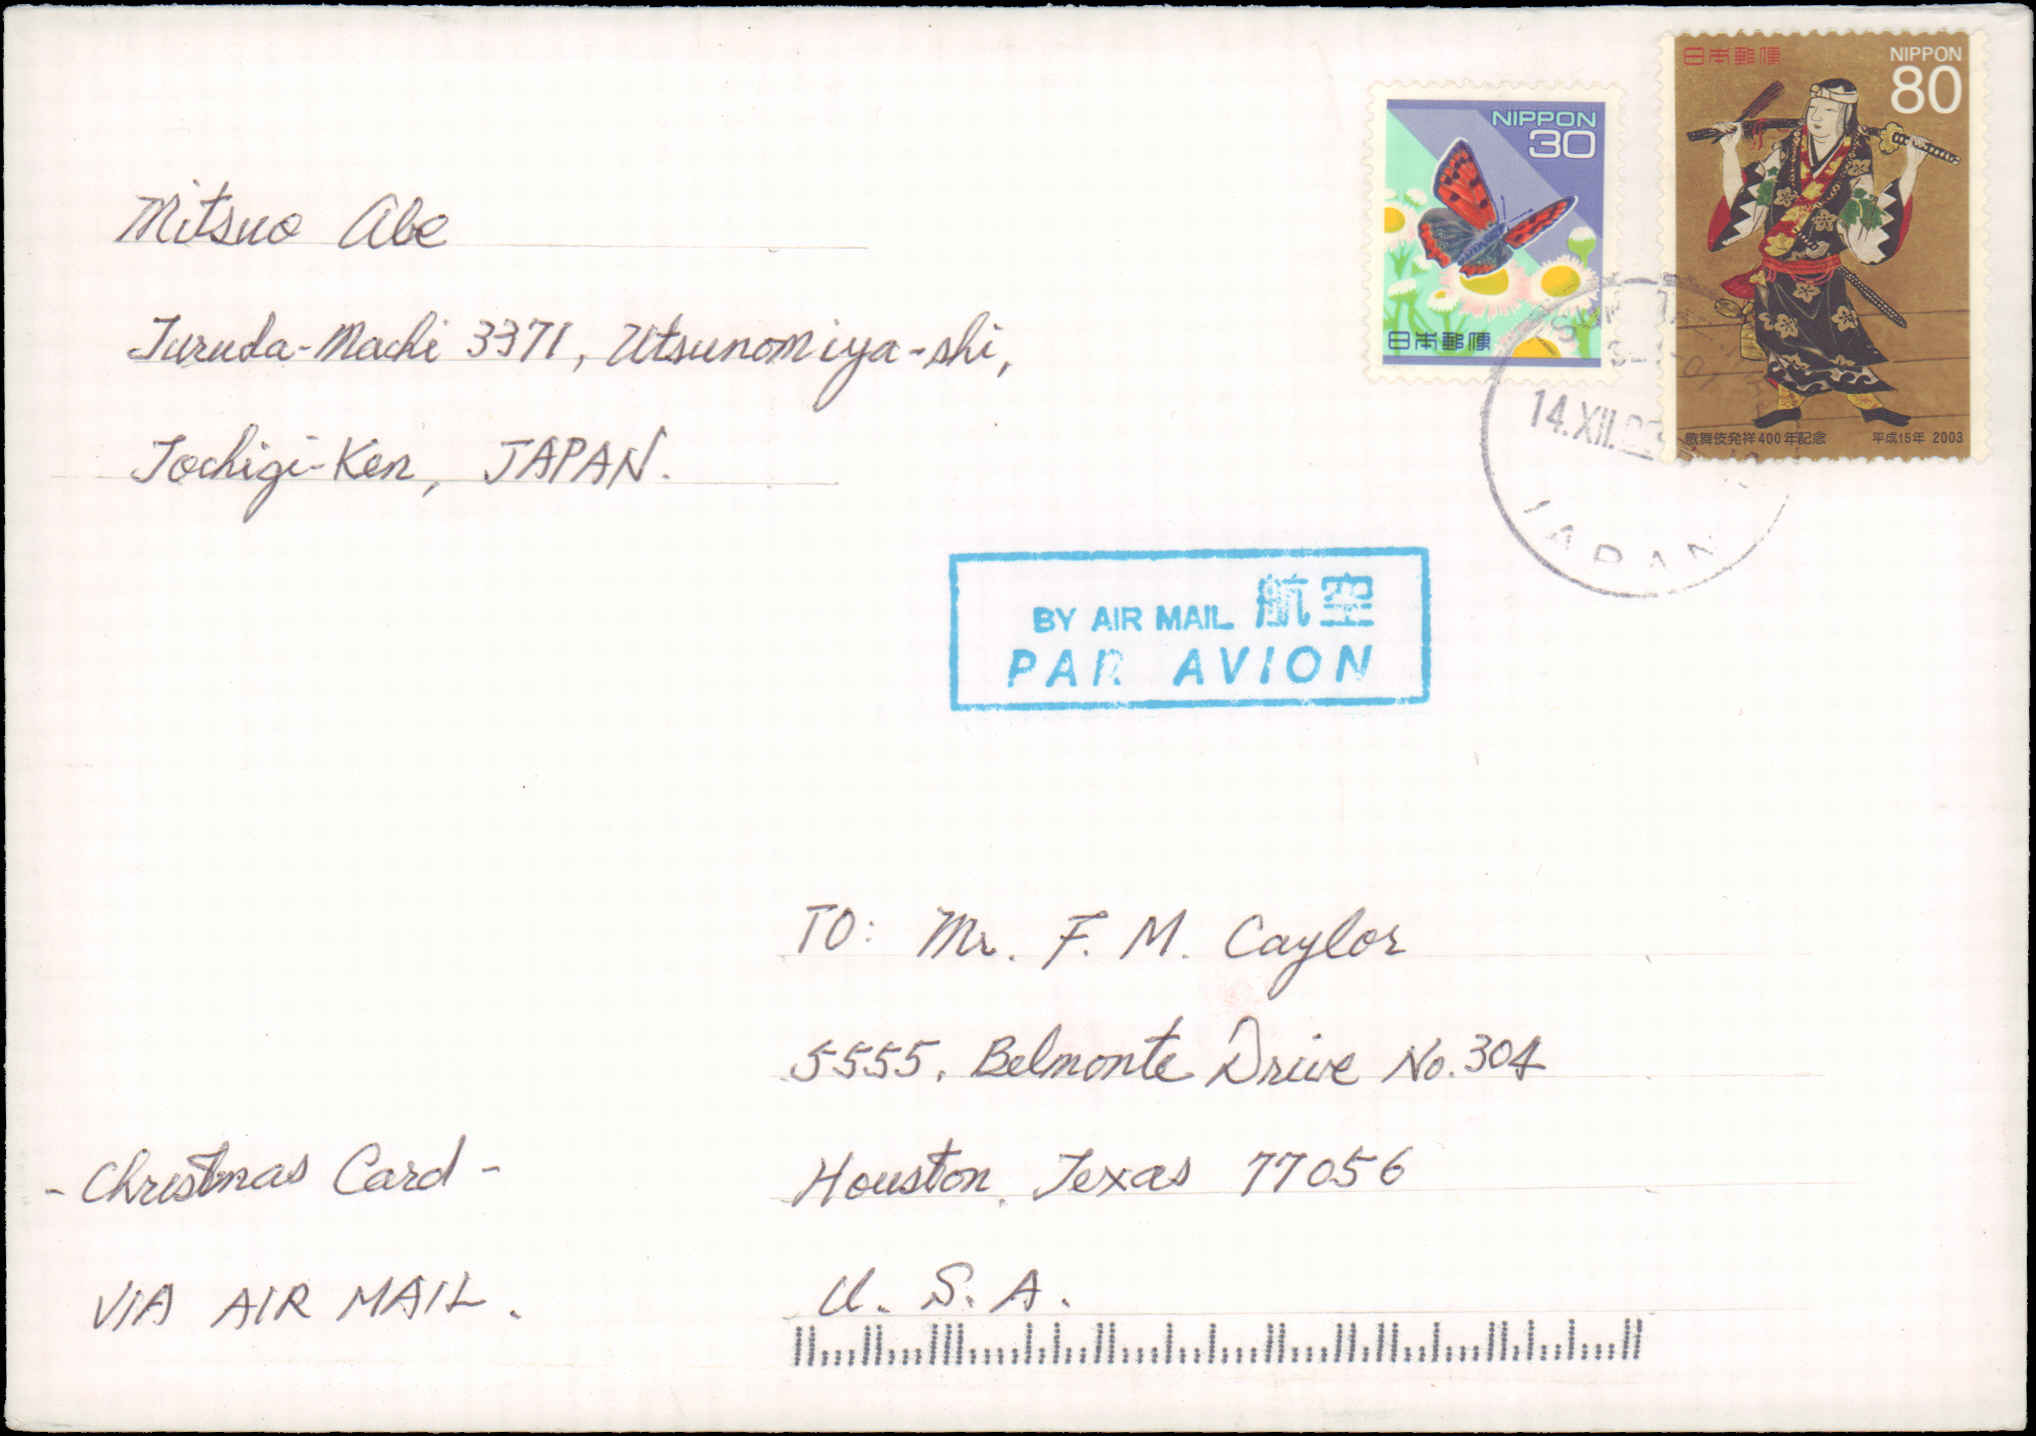 Mitsuo Abe
Turuda-Machi 3371, Utsunomiya-shi,
Tochigi-Ken, JAPAN.
NIPPON
30
日本郵便
日本郵便
NIPPON
80
歌舞伎発祥400年記念 平成15年 2003
14.XII.03
JAPAN
BY AIR MAIL 航空
PAR AVION
TO: Mr. F. M. Caylor
5555, Belmonte Drive No. 304
Houston, Texas 77056
U. S. A.
- Christmas Card -
VIA AIR MAIL.